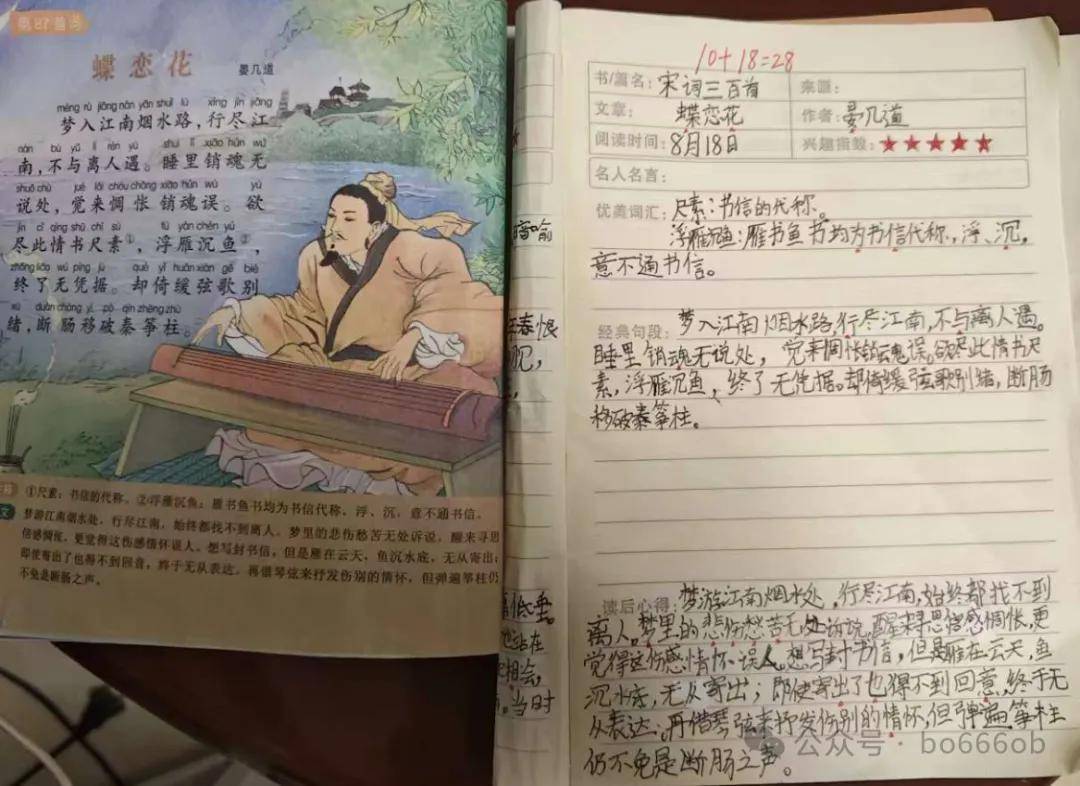 第87首
蝶恋花
晏几道
mèng rù jiāng nán yān shuǐ lù xíng jìn jiāng
梦入江南烟水路，行尽江
nán bù yǔ lí rén yù shuì lǐ xiāo hún wú
南，不与离人遇。睡里销魂无
shuō chù jué lái chóu chàng xiāo hún wù yù
说处，觉来惆怅销魂误。欲
jìn cǐ qíng shū chǐ sù fú yàn chén yú
尽此情书尺素①，浮雁沉鱼②，
zhōng liǎo wú píng jù què yǐ huǎn xián gē bié
终了无凭据。却倚缓弦歌别
xù duàn cháng yí pò qín zhēng zhù
绪，断肠移破秦筝柱。
①尺素：书信的代称。②浮雁沉鱼：雁书鱼书均为书信代称，浮、沉，意不通书信。
梦游江南烟水处，行尽江南，始终都找不到离人。梦里的悲伤愁苦无处诉说，醒来寻思
倍感惆怅，更觉得这伤感情怀误人。想写封书信，但是雁在云天，鱼沉水底，无从寄出；
即使寄出了也得不到回音，终于无从表达。再借琴弦来抒发伤别的情怀，但弹遍筝柱仍
不免是断肠之声。
暗喻
春恨
低垂。
站在
相会，
当时
10+18=28
书/篇名：宋词三百首 来源：
文章： 蝶恋花 作者：晏几道
阅读时间：8月18日 兴趣指数：★★★★★
名人名言：
优美词汇：尺素：书信的代称。
浮雁沉鱼：雁书鱼书均为书信代称，浮、沉，
意不通书信。
经典句段：梦入江南烟水路，行尽江南，不与离人遇。
睡里销魂无说处，觉来惆怅销魂误。欲尽此情书尺
素，浮雁沉鱼，终了无凭据。却倚缓弦歌别绪，断肠
移破秦筝柱。
读后心得：梦游江南烟水处，行尽江南，始终都找不到
离人。梦里的悲伤愁苦无处诉说，醒来寻思倍感惆怅，更
觉得这伤感情怀误人。想写封书信，但是雁在云天，鱼
沉水底，无从寄出；即使寄出了也得不到回意，终于无
从表达。再借琴弦来抒发伤别的情怀，但弹遍筝柱
仍不免是断肠之声。
公众号 bo666ob